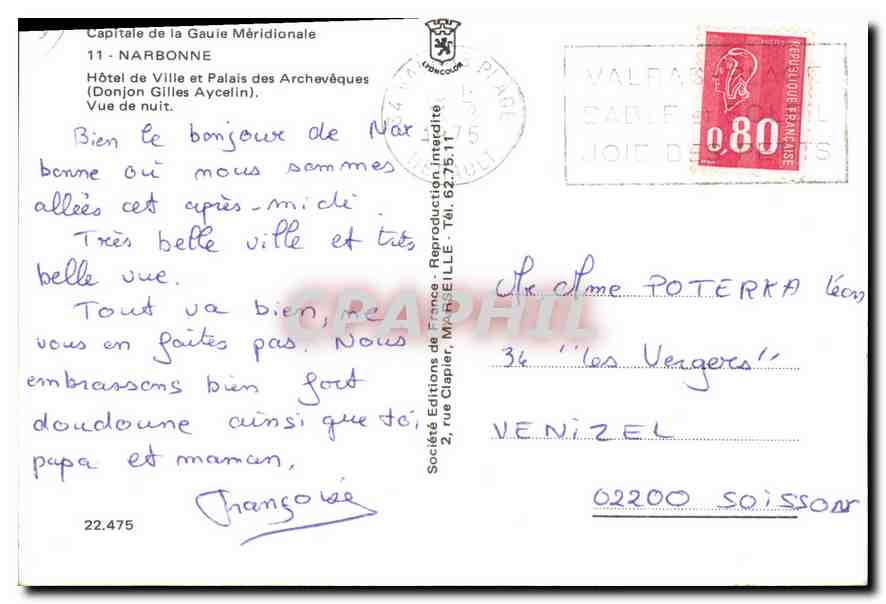 Capitale de la Gaule Méridionale
11 - NARBONNE
Hôtel de Ville et Palais des Archevêques
(Donjon Gilles Aycelin).
Vue de nuit.
Bien le bonjour de Nar
bonne où nous sommes
allées cet après-midi.
Très belle ville et très
belle vue.
Tout va bien, ne
vous en faites pas. Nous
embrassons bien fort
doudoune ainsi que toi,
papa et maman.
Françoise
22.475
LYONCOLOR
Société Editions de France - Reproduction interdite
2, rue Clapier, MARSEILLE - Tél. 62.75.11
CPAPHIL
34 VALRAS PLAGE
1975
HERAULT
VALRAS PLAGE
SABLE
JOIE DES
0,80
REPUBLIQUE FRANÇAISE
Mr Mme POTERKA Léon
34 "les Vergers"
VENIZEL
02200 SOISSONS